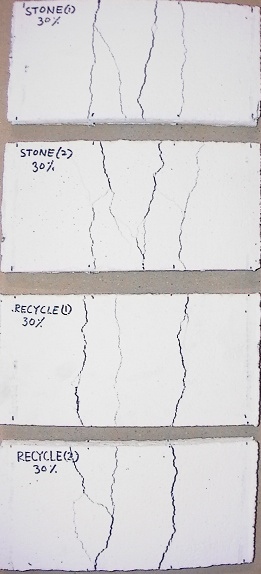 STONE(1)
30%
STONE(2)
30%
RECYCLE(1)
30%
RECYCLE(2)
30%